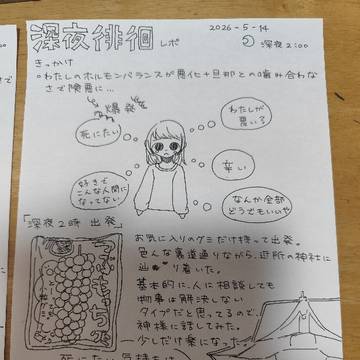 深夜徘徊 レポ
2026-5-14
深夜2:00
きっかけ
・わたしのホルモンバランスが悪化+旦那との噛み合わな
さで険悪に…
爆発
死にたい
わたしが
悪い?
好きで
こんな人間に
なってない
辛い
なんか全部
どうでもいいや
「深夜2時 出発」
お気に入りのグミだけ持って出発。
色んな裏道通りながら、近所の神社に
辿り着いた。
基本的に、人に相談しても
物事は解決しない
タイプだと思ってるので、
神様に話してみた。
少しだけ楽になった
死にたい気持ちは